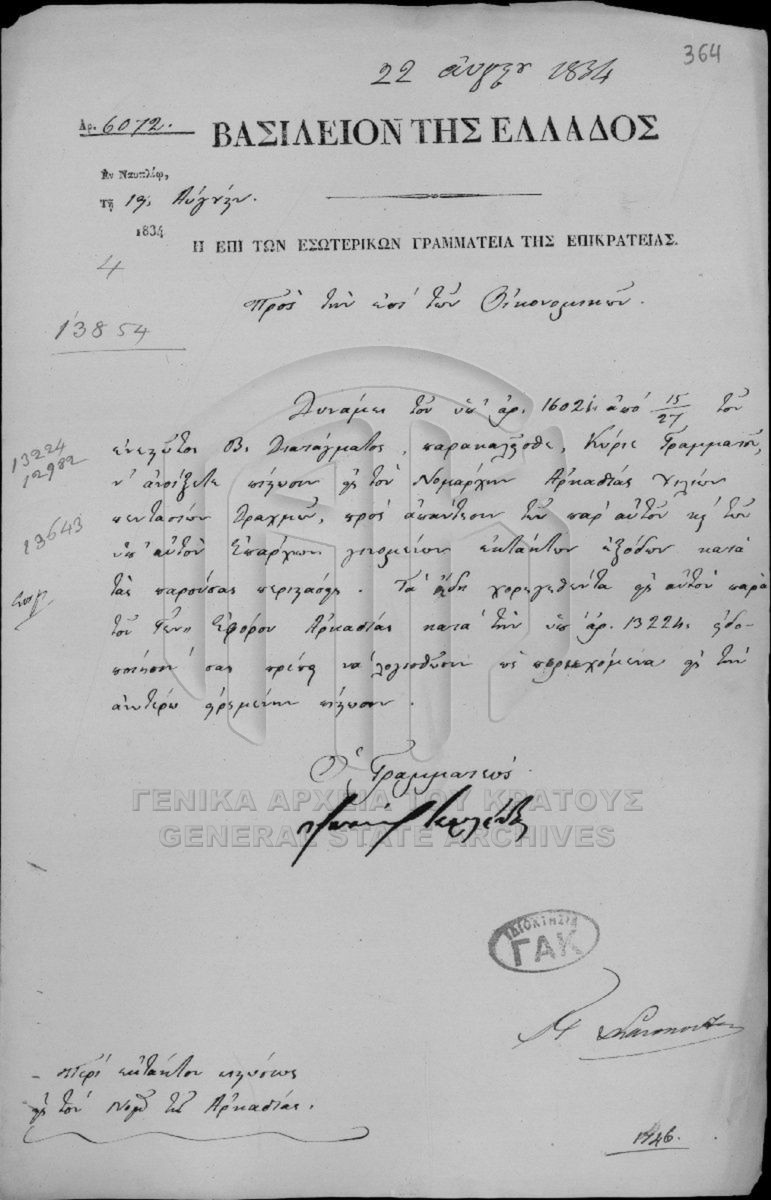 364
22 αυγου 1834
Αρ. 6072.
ΒΑΣΙΛΕΙΟΝ ΤΗΣ ΕΛΛΑΔΟΣ
Εν Ναυπλίῳ,
Τῇ 19 Αὐγούςου.
1834
Η ΕΠΙ ΤΩΝ ΕΣΩΤΕΡΙΚΩΝ ΓΡΑΜΜΑΤΕΙΑ ΤΗΣ ΕΠΙΚΡΑΤΕΙΑΣ.
4
Πρὸς τὴν ἐπὶ τῶν Οἰκονομικῶν.
13854
Δυνάμει τοῦ ὑπ' ἀρ. 16021 ἀπὸ 15/27 τοῦ
13224
12982
ἐνεστῶτος Β. Διατάγματος, παρακαλεῖσθε, Κύριε Γραμματεῦ,
ν' ἀνοίξετε πίστωσιν εἰς τὸν Νομάρχην Ἀρκαδίας χιλίων
13643
πεντακοσίων Δραχμῶν, πρὸς ἀπάντησιν τῶν παρ' αὐτοῦ καὶ τῶν
ὑπ' αὐτὸν Ἐπάρχων γενομένων ἐκτάκτων ἐξόδων κατὰ
τὰς παρούσας περιστάσεις. Τὰ ἤδη χορηγηθέντα εἰς αὐτὸν παρὰ
τοῦ Γεν. Ἐφόρου Ἀρκαδίας κατὰ τὴν ὑπ' ἀρ. 13224 εἰδο-
ποίησίν σας πρέπει νὰ λογισθῶσιν ὡς περιεχόμενα εἰς τὴν
ἀνωτέρω εἰρημένην πίστωσιν.
Ὁ Γραμματεὺς
ΓΕΝΙΚΑ ΑΡΧΕΙΑ ΤΟΥ ΚΡΑΤΟΥΣ
GENERAL STATE ARCHIVES
ΙΔΙΟΚΤΗΣΙΑ
ΓΑΚ
Περὶ ἐκτάκτου πιστώσεως
εἰς τὸν Νομ. τῆς Ἀρκαδίας.